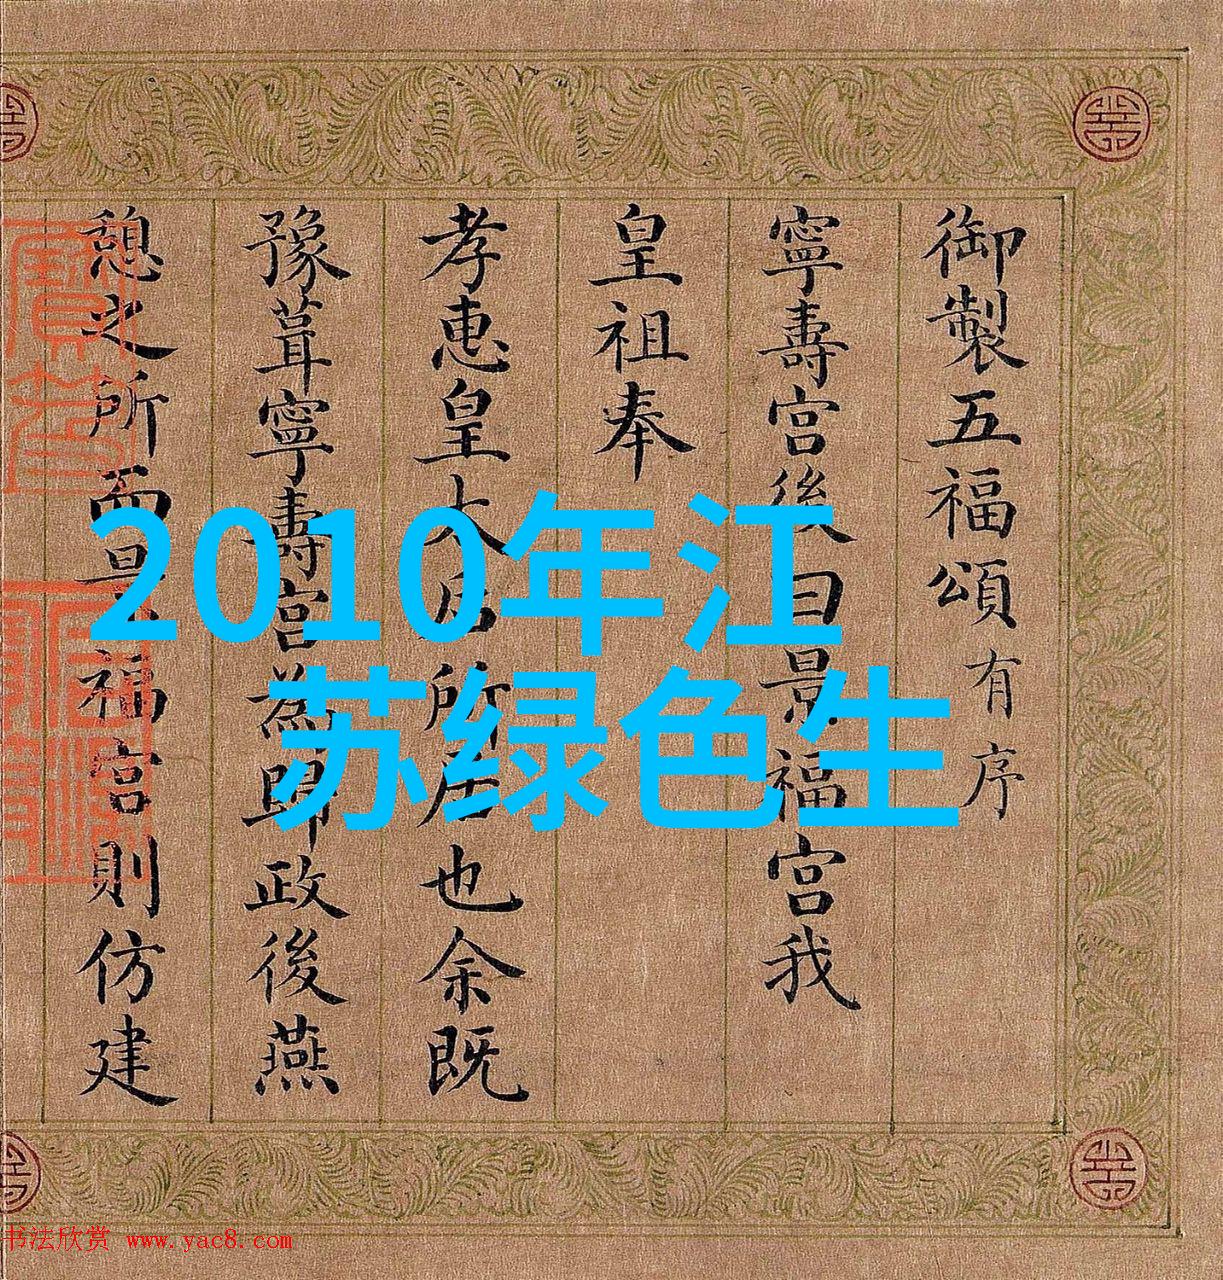 御製五福頌有序
寧壽宮後曰景福宮我
皇祖奉
孝惠皇太后所居也余既
豫葺寧壽宮為歸政後燕
憩之所而景福宮則仿建
2010年江
苏绿色生
书法欣赏 www.yac8.com